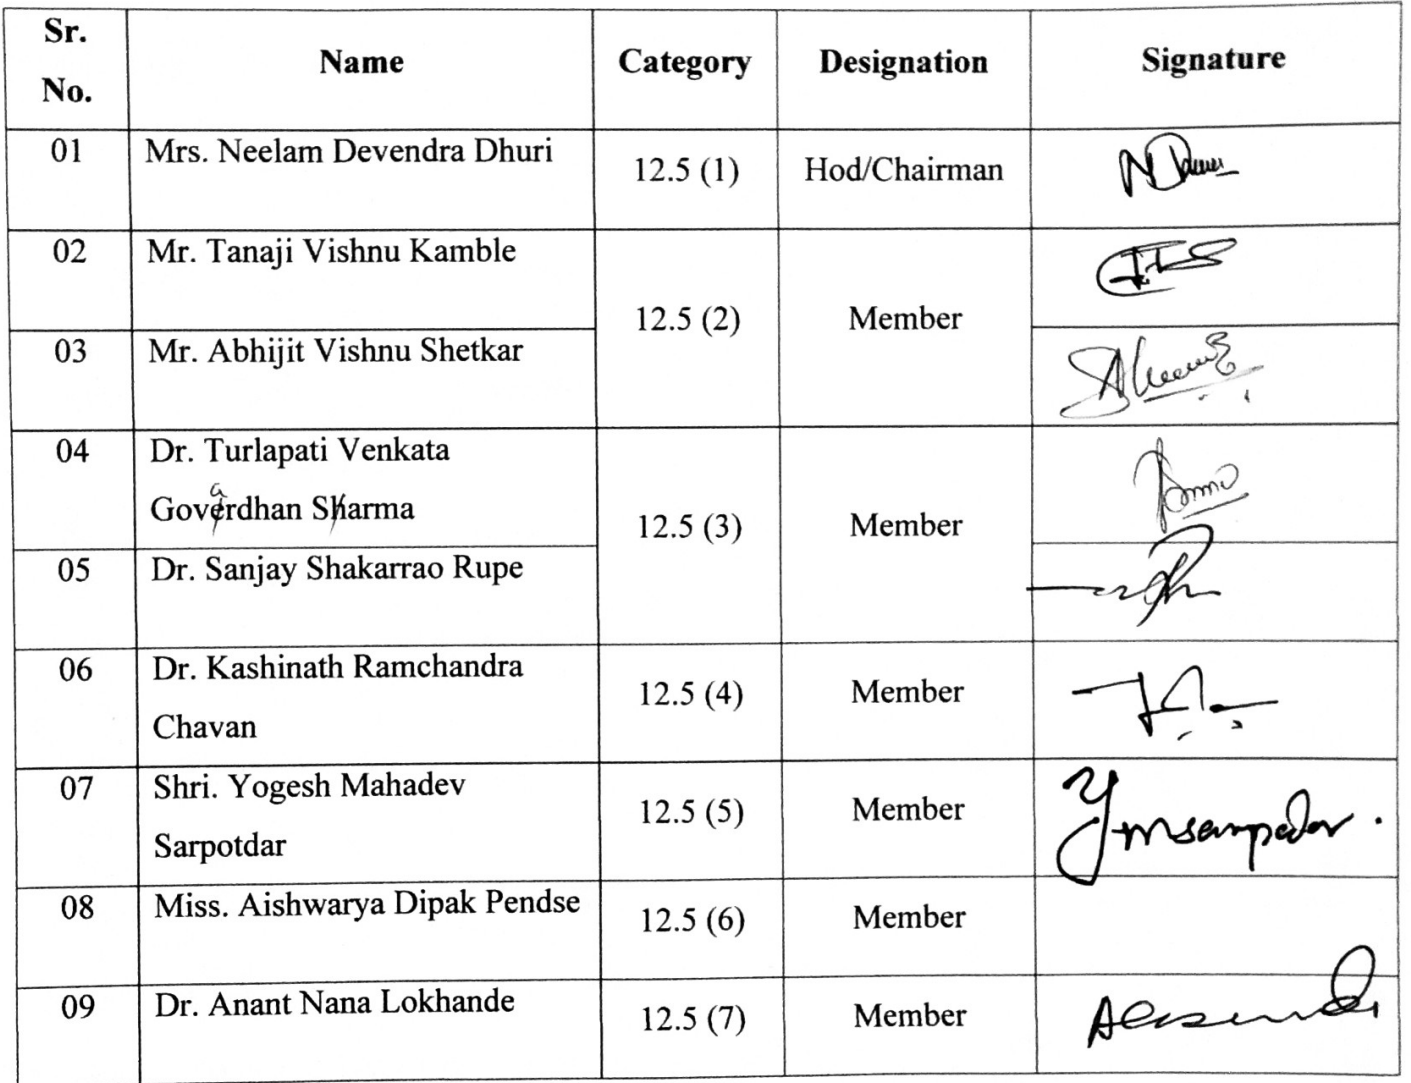 Sr. No. Name Category Designation Signature
01 Mrs. Neelam Devendra Dhuri 12.5 (1) Hod/Chairman
02 Mr. Tanaji Vishnu Kamble
12.5 (2) Member
03 Mr. Abhijit Vishnu Shetkar
04 Dr. Turlapati Venkata
Govardhan Sarma
12.5 (3) Member
05 Dr. Sanjay Shakarrao Rupe
06 Dr. Kashinath Ramchandra
Chavan
12.5 (4) Member
07 Shri. Yogesh Mahadev
Sarpotdar
12.5 (5) Member
08 Miss. Aishwarya Dipak Pendse 12.5 (6) Member
09 Dr. Anant Nana Lokhande 12.5 (7) Member